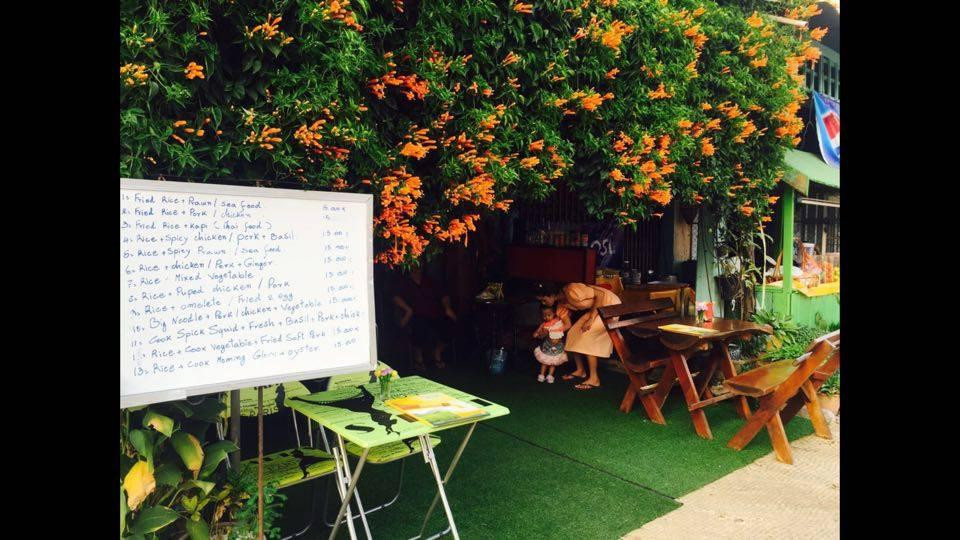 1= Fried Rice + Prawn / sea food 15.000 K
2= Fried Rice + Pork / chicken 15
3= Fried Rice + Kapi (thai food)
4= Rice + Spicy chicken / pork + Basil 15.000
5= Rice + Spicy Prawn / sea food 15.000
6= Rice + chicken / Pork + Ginger 15.000
7= Rice + Mixed Vegetable 15.000
8= Rice + Puped chicken / Pork 15.000
9= Rice + omelete / Fried egg 15.000
10= Big Noodle + Pork / chicken + Vegetable 15.000
11= Cook Spick Squid + Fresh + Basil + Pork + chick
Rice + Cook Vegetable + Fried Soft Pork 15.000
13= Rice + Cook Morning Glory + oyster 15.000